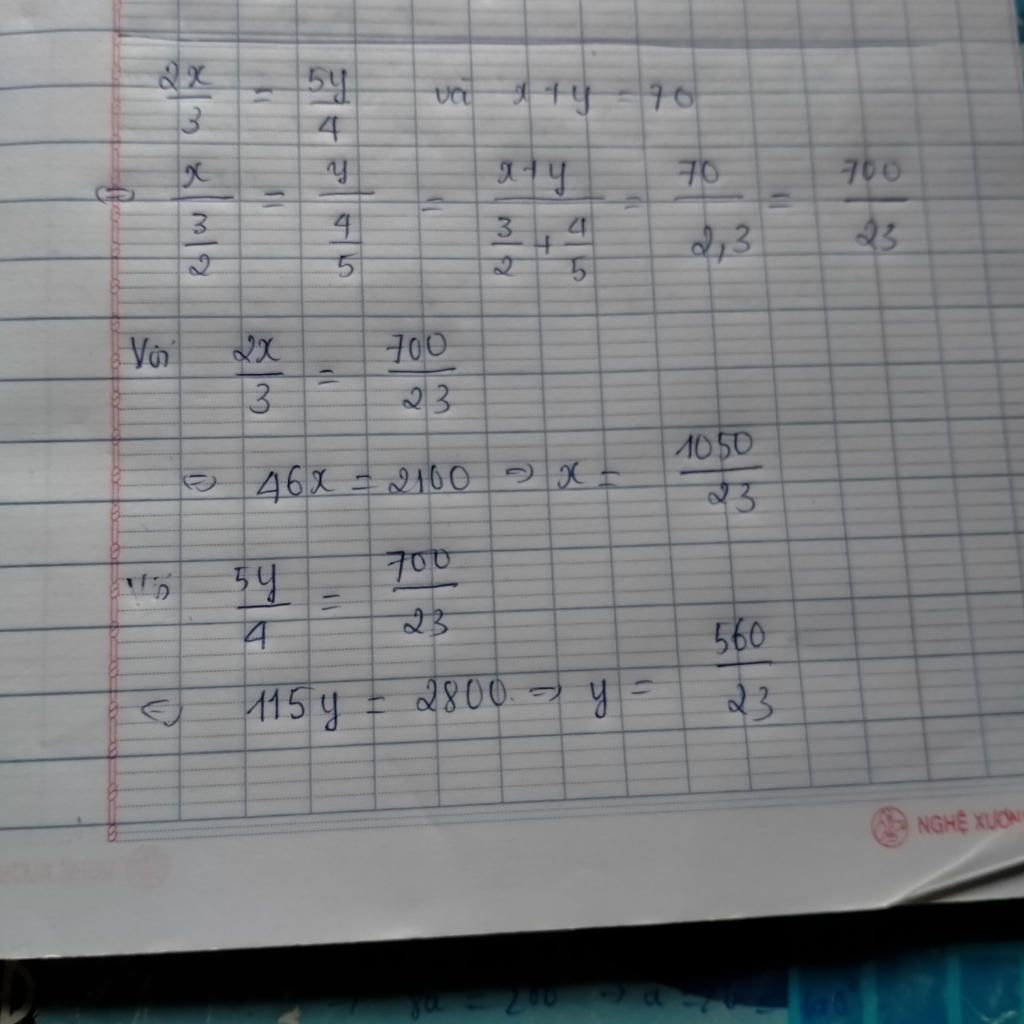 2x/3 = 5y/4 và x+y = 70
⇔ x/(3/2) = y/(4/5) = (x+y)/(3/2 + 4/5) = 70/2,3 = 700/23
Với 2x/3 = 700/23
⇔ 46x = 2100 ⇒ x = 1050/23
Với 5y/4 = 700/23
⇔ 115y = 2800 ⇒ y = 560/23
NGHỆ XƯƠN
8a = 200 ⇒ a =